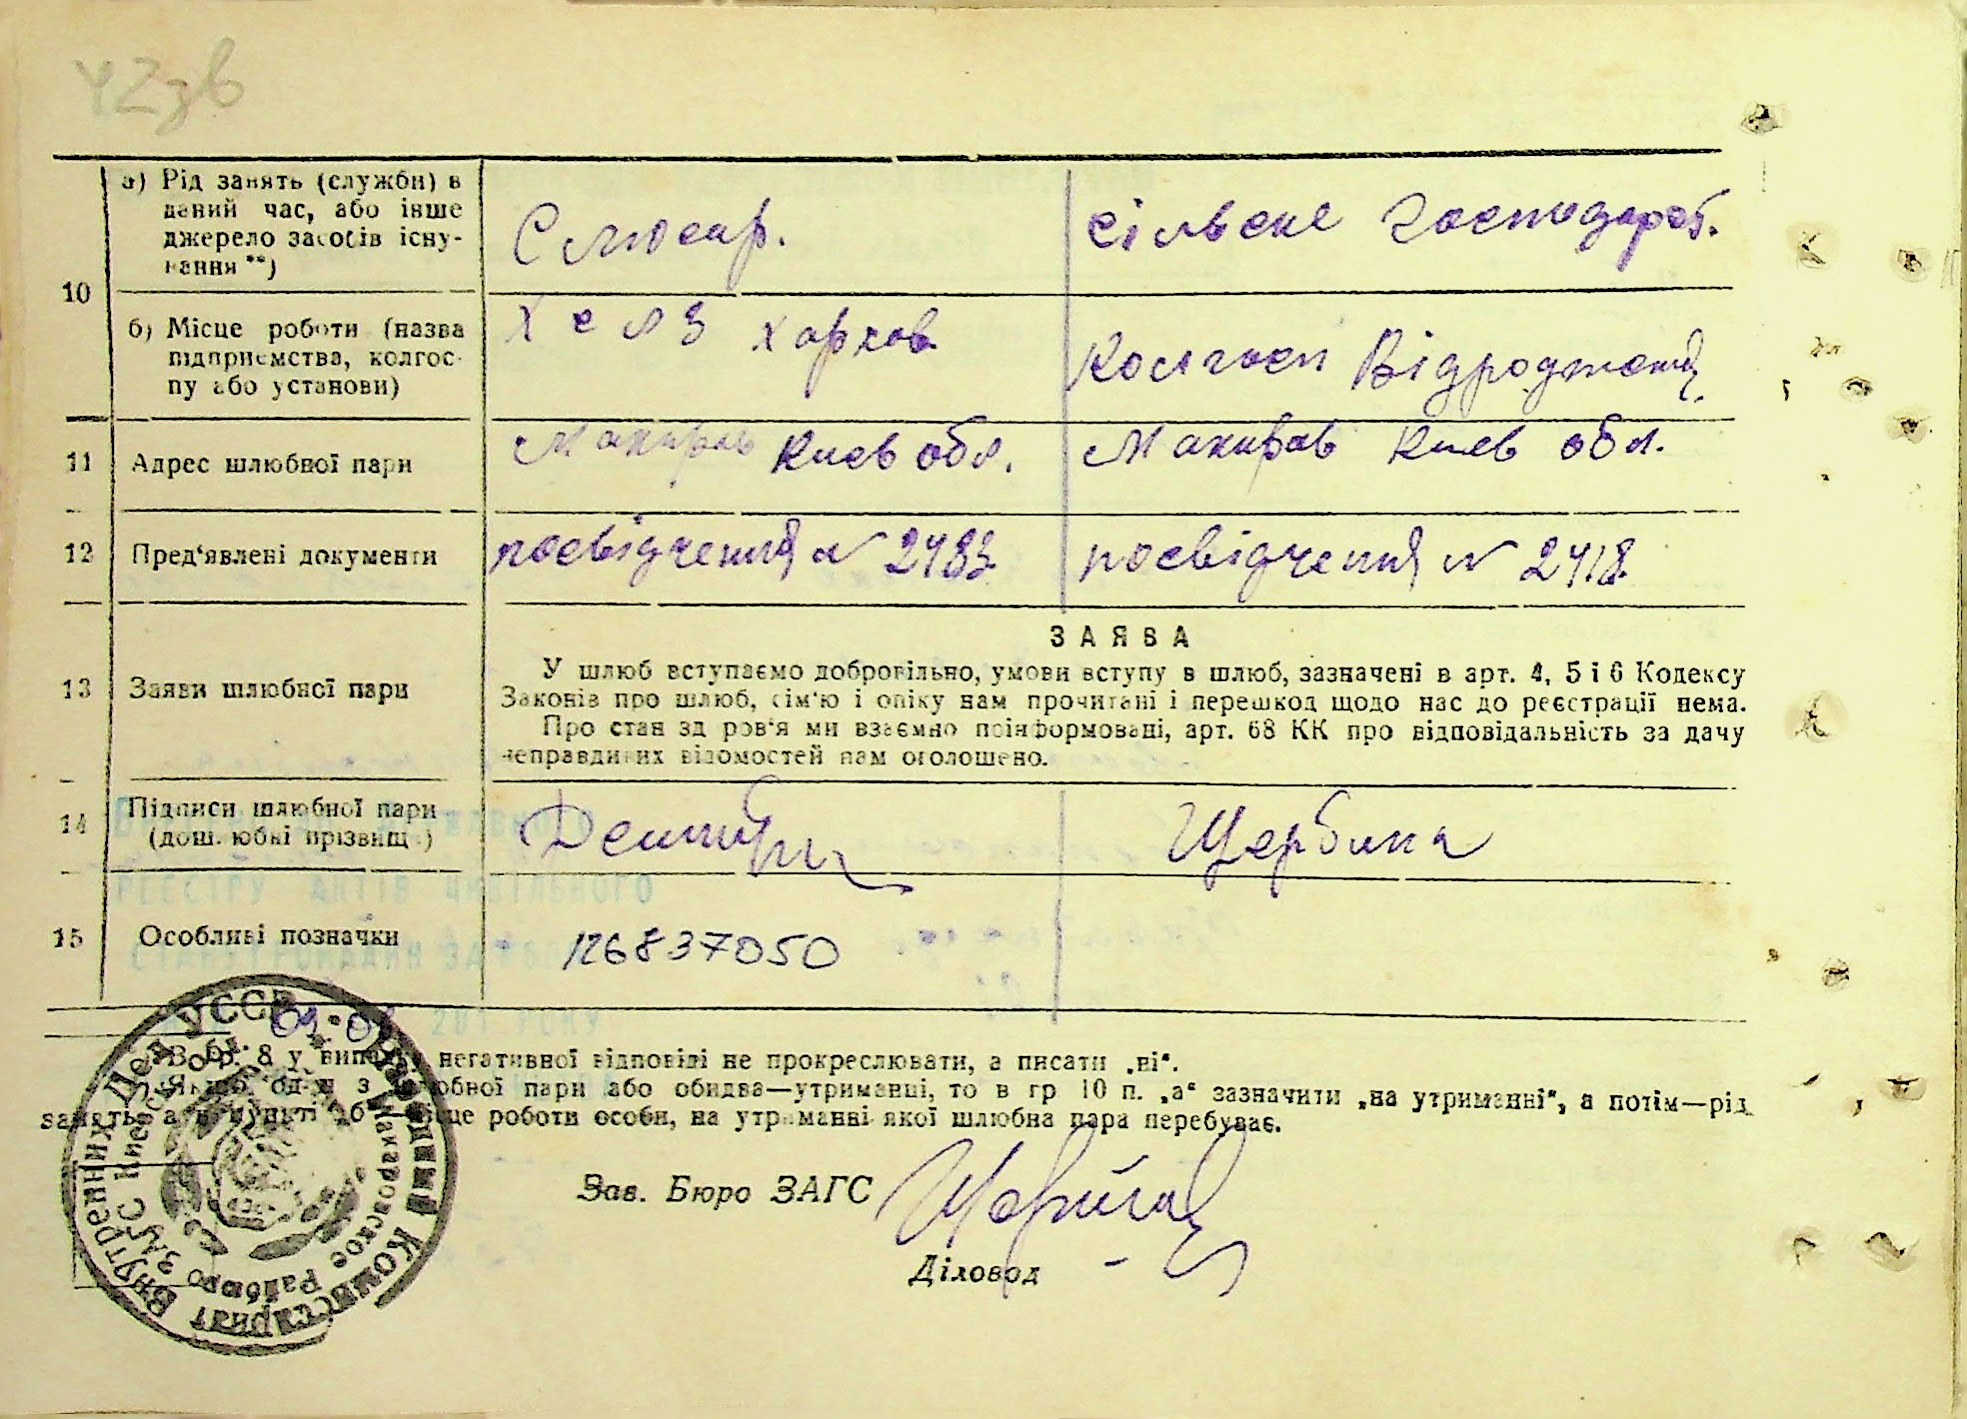 10
а) Рід занять (служби) в
даний час, або інше
джерело засобів існу-
вання **)
Слюсар.
сільске господарст.
б) Місце роботи (назва
підприємства, колгос-
пу або установи)
Х е л З Харков
Колгосп Відродження
11 Адрес шлюбної пари
Макиров Киев обл.
Макиров Киев обл.
12 Пред'явлені документи
посвідчення № 2483
посвідчення № 2418
13 Заяви шлюбної пари
ЗАЯВА
У шлюб вступаємо добровільно, умови вступу в шлюб, зазначені в арт. 4, 5 і 6 Кодексу
Законів про шлюб, сім'ю і опіку нам прочитані і перешкод щодо нас до реєстрації нема.
Про стан здоров'я ми взаємно поінформовані, арт. 68 КК про відповідальність за дачу
неправдивих відомостей нам оголошено.
14 Підписи шлюбної пари
(дошлюбні прізвища)
Щербина
РЕЄСТРУ АКТІВ ЦИВІЛЬНОГО
15 Особливі позначки
126837050
СТАНУ ГРОМАДЯН
201 РОКУ
В гр. 8 у випадку негативної відповіді не прокреслювати, а писати „ні“.
Якщо один з шлюбної пари або обидва—утриманці, то в гр 10 п. „а“ зазначити „на утриманні“, а потім—рід
занять, а в пункті „б“—місце роботи особи, на утриманні якої шлюбна пара перебуває.
Народний Комиссариат Внутренних Дел УССР
Макаровское Райбюро ЗАГС Киевской обл.
Зав. Бюро ЗАГС
Діловод –